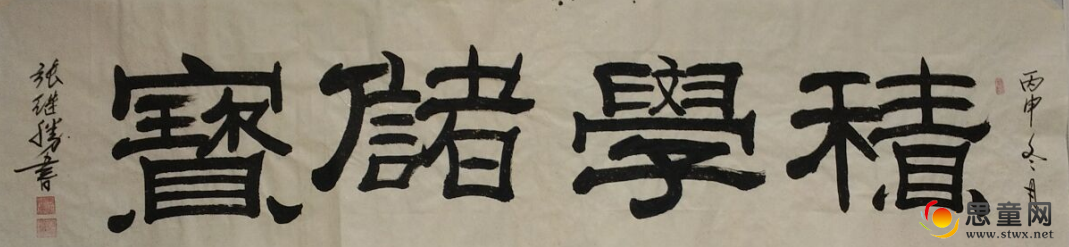 丙申冬月
積學儲寶
張継勝書
思童网
www.stwx.net